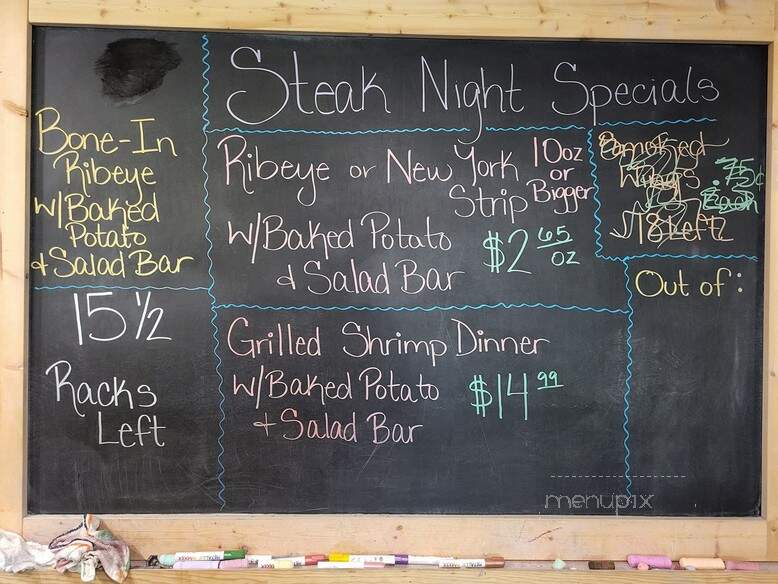 Steak Night Specials
Bone-In
Ribeye
w/Baked
Potato
+ Salad Bar
15 1/2
Racks
Left
Ribeye or New York
Strip
10oz
or
Bigger
w/Baked Potato
+ Salad Bar
$2 65
oz
Grilled Shrimp Dinner
w/Baked Potato
+ Salad Bar
$14 99
Wings
75¢
Each
18 Left
Out of:
menupix